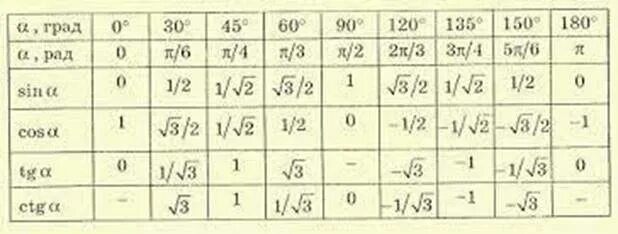 α, град 0° 30° 45° 60° 90° 120° 135° 150° 180°
α, рад 0 π/6 π/4 π/3 π/2 2π/3 3π/4 5π/6 π
sin α 0 1/2 1/√2 √3/2 1 √3/2 1/√2 1/2 0
cos α 1 √3/2 1/√2 1/2 0 -1/2 -1/√2 -√3/2 -1
tg α 0 1/√3 1 √3 – -√3 -1 -1/√3 0
ctg α – √3 1 1/√3 0 -1/√3 -1 -√3 –